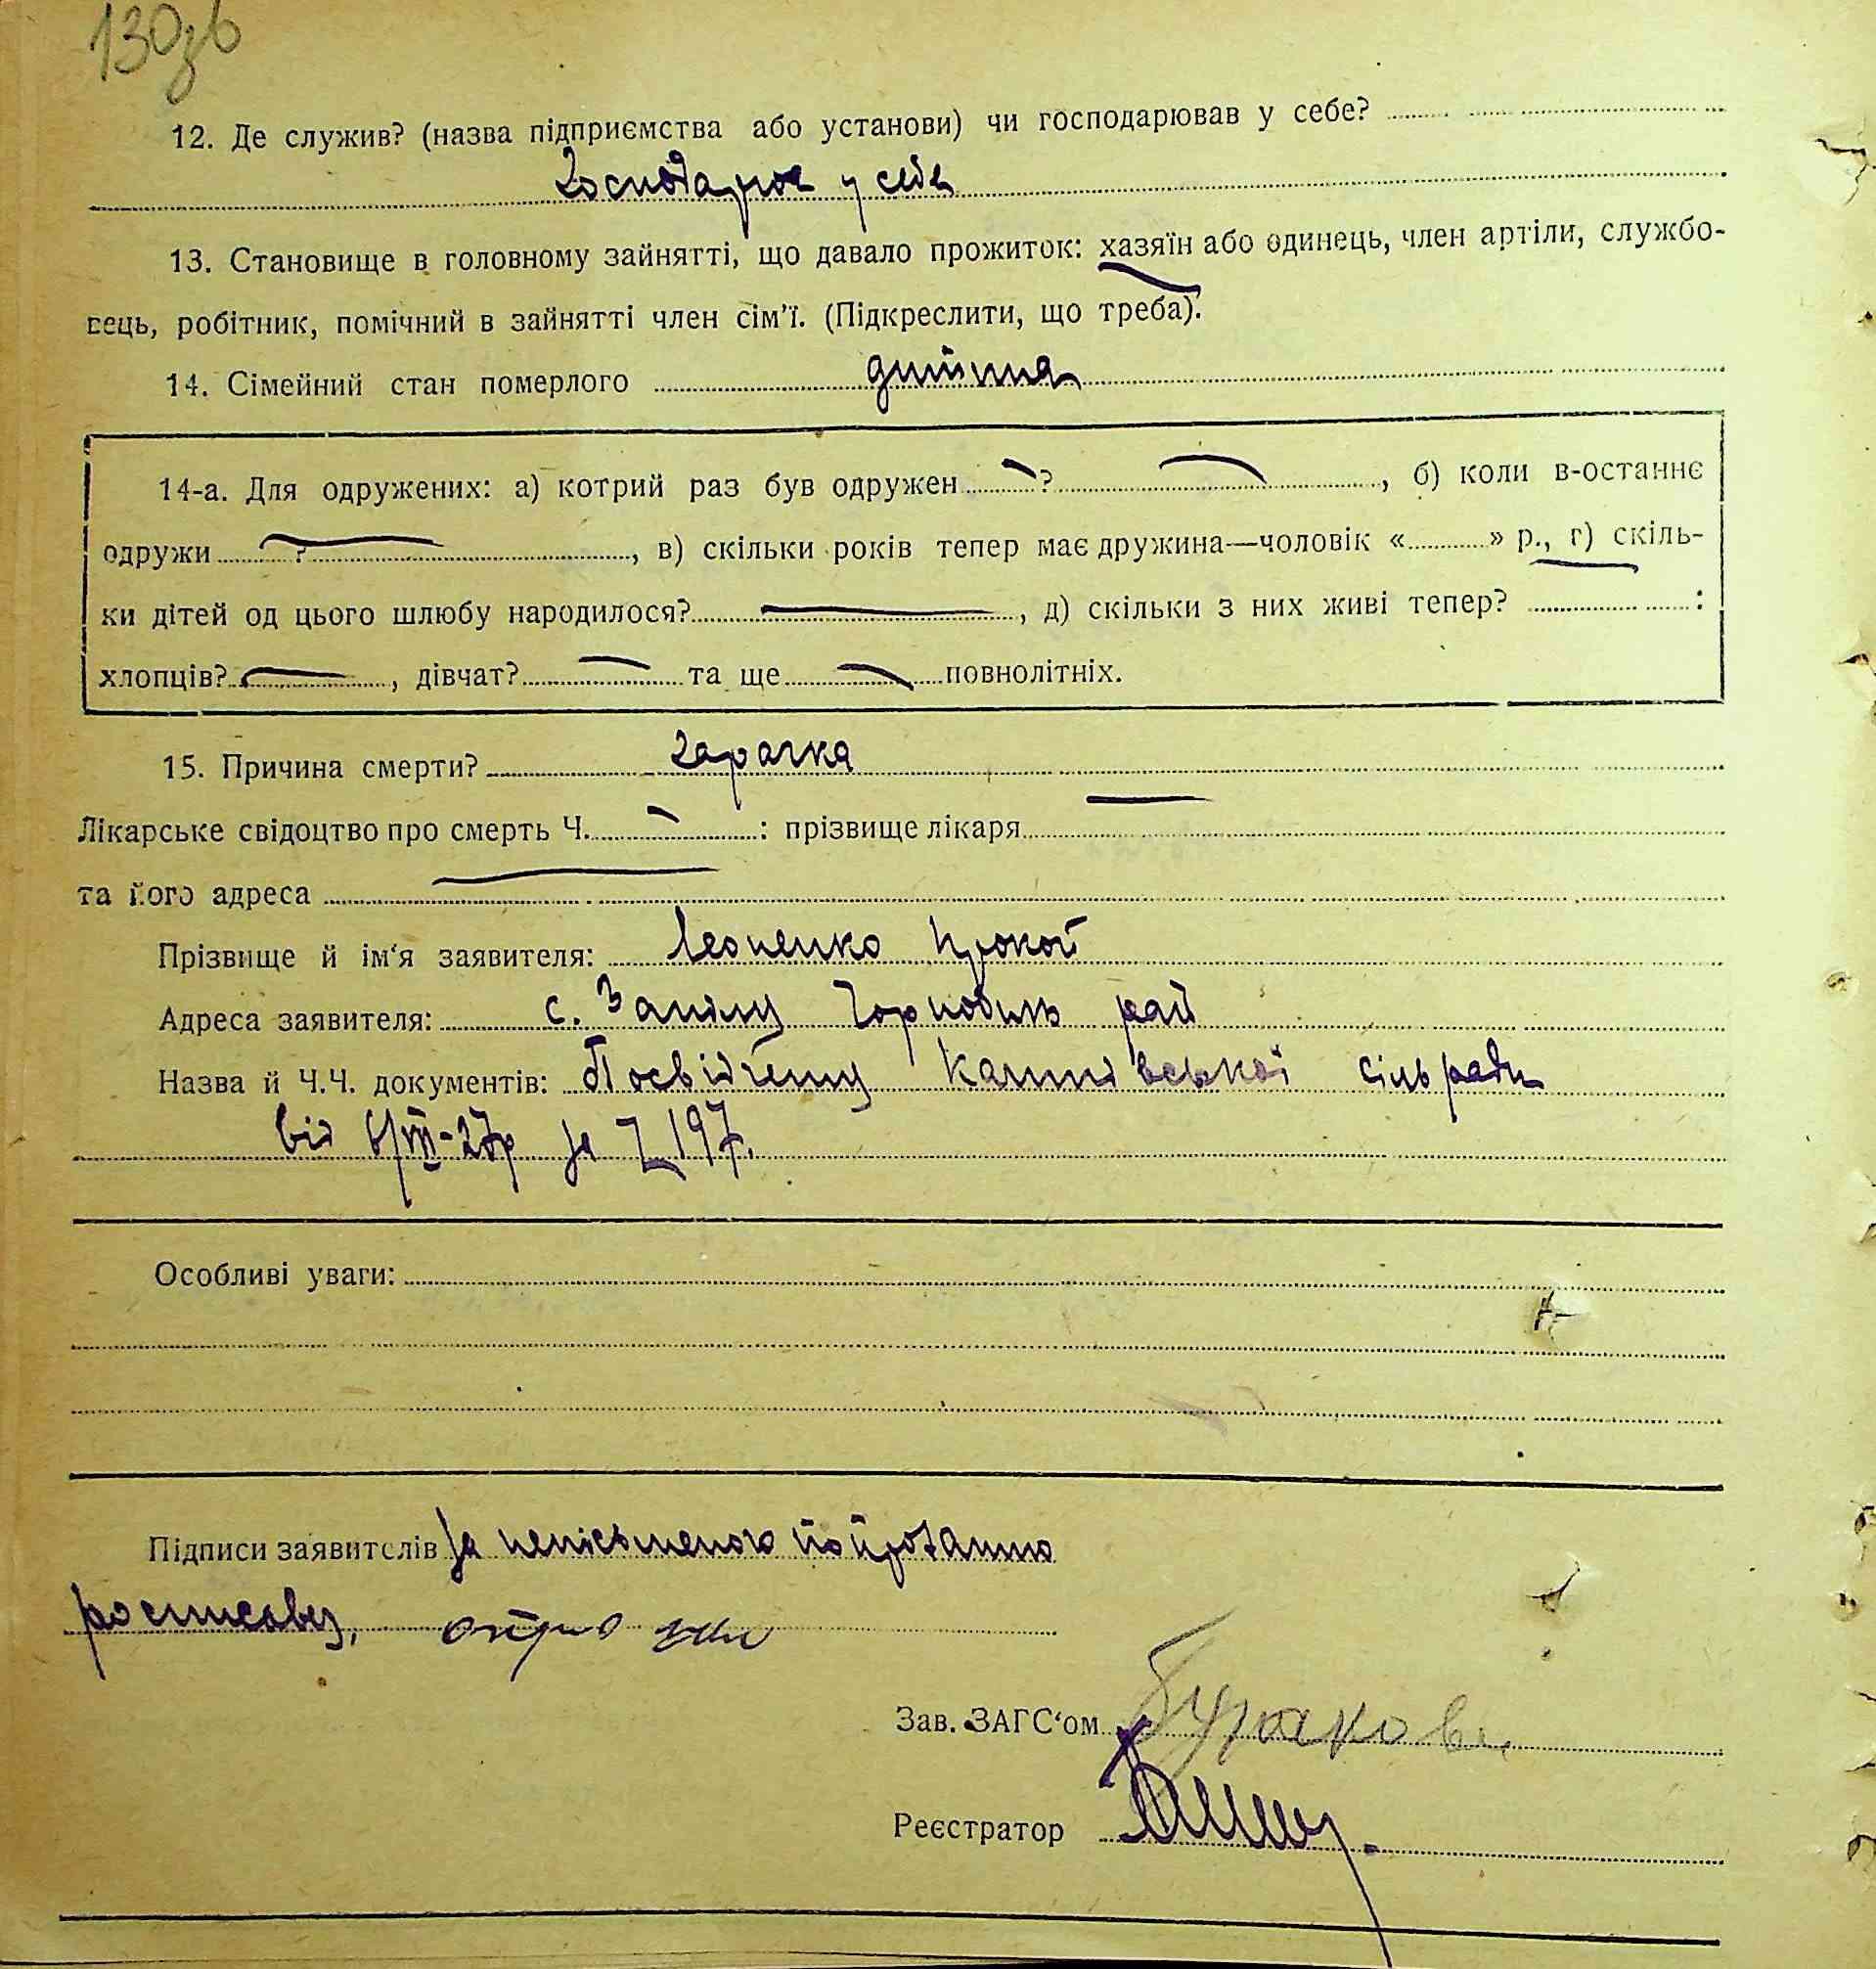 130зв
12. Де служив? (назва підприємства або установи) чи господарював у себе?
Господарює у себе
13. Становище в головному зайнятті, що давало прожиток: хазяїн або одинець, член артіли, службо-
вець, робітник, помічний в зайнятті член сім'ї. (Підкреслити, що треба).
14. Сімейний стан померлого дитина
14-а. Для одружених: а) котрий раз був одружен ? , б) коли в-останнє
одружи ? , в) скільки років тепер має дружина—чоловік « » р., г) скіль-
ки дітей од цього шлюбу народилося? , д) скільки з них живі тепер? :
хлопців? , дівчат? та ще повнолітніх.
15. Причина смерти? гарачка
Лікарське свідоцтво про смерть Ч. : прізвище лікаря
та його адреса
Прізвище й ім'я заявителя: Леоненко
Адреса заявителя: с. Чорнобиль рай
Назва й Ч.Ч. документів: Посвідчену сільради
від 6/VIII-27р за 197.
Особливі уваги:
Підписи заявителів за неписьменого
росписавсь,
Зав. ЗАГС'ом
Реєстратор